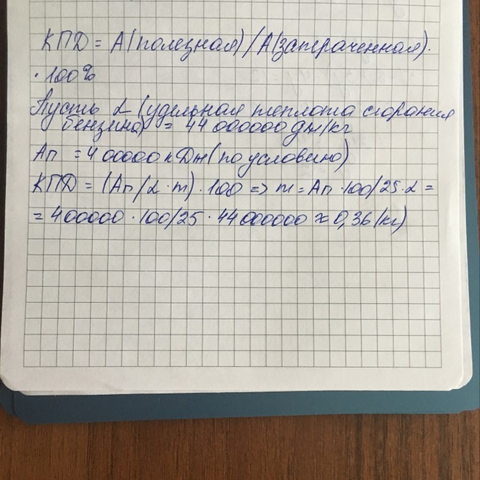 КПД = А(полезная)/А(затраченная)·
· 100%
Пусть L (удельная теплота сгорания
бензина) = 44 000000 дж/кг
Ап = 400000 кДж (по условию)
КПД = (Ап/L·m)·100 => m = Ап·100/25·L =
= 400000·100/25·44000000 ≈ 0,36 (кг)